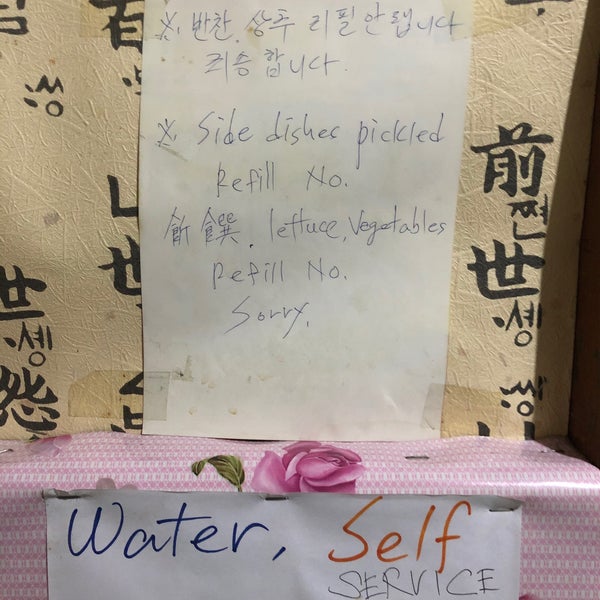 ※. 반찬. 상추 리필 안됩니다
죄송합니다.
※. Side dishes pickled
Refill No.
飾饌. lettuce, Vegetables
Refill No.
Sorry.
前
쪈
世
솅
世
솅
Water, Self
SERVICE